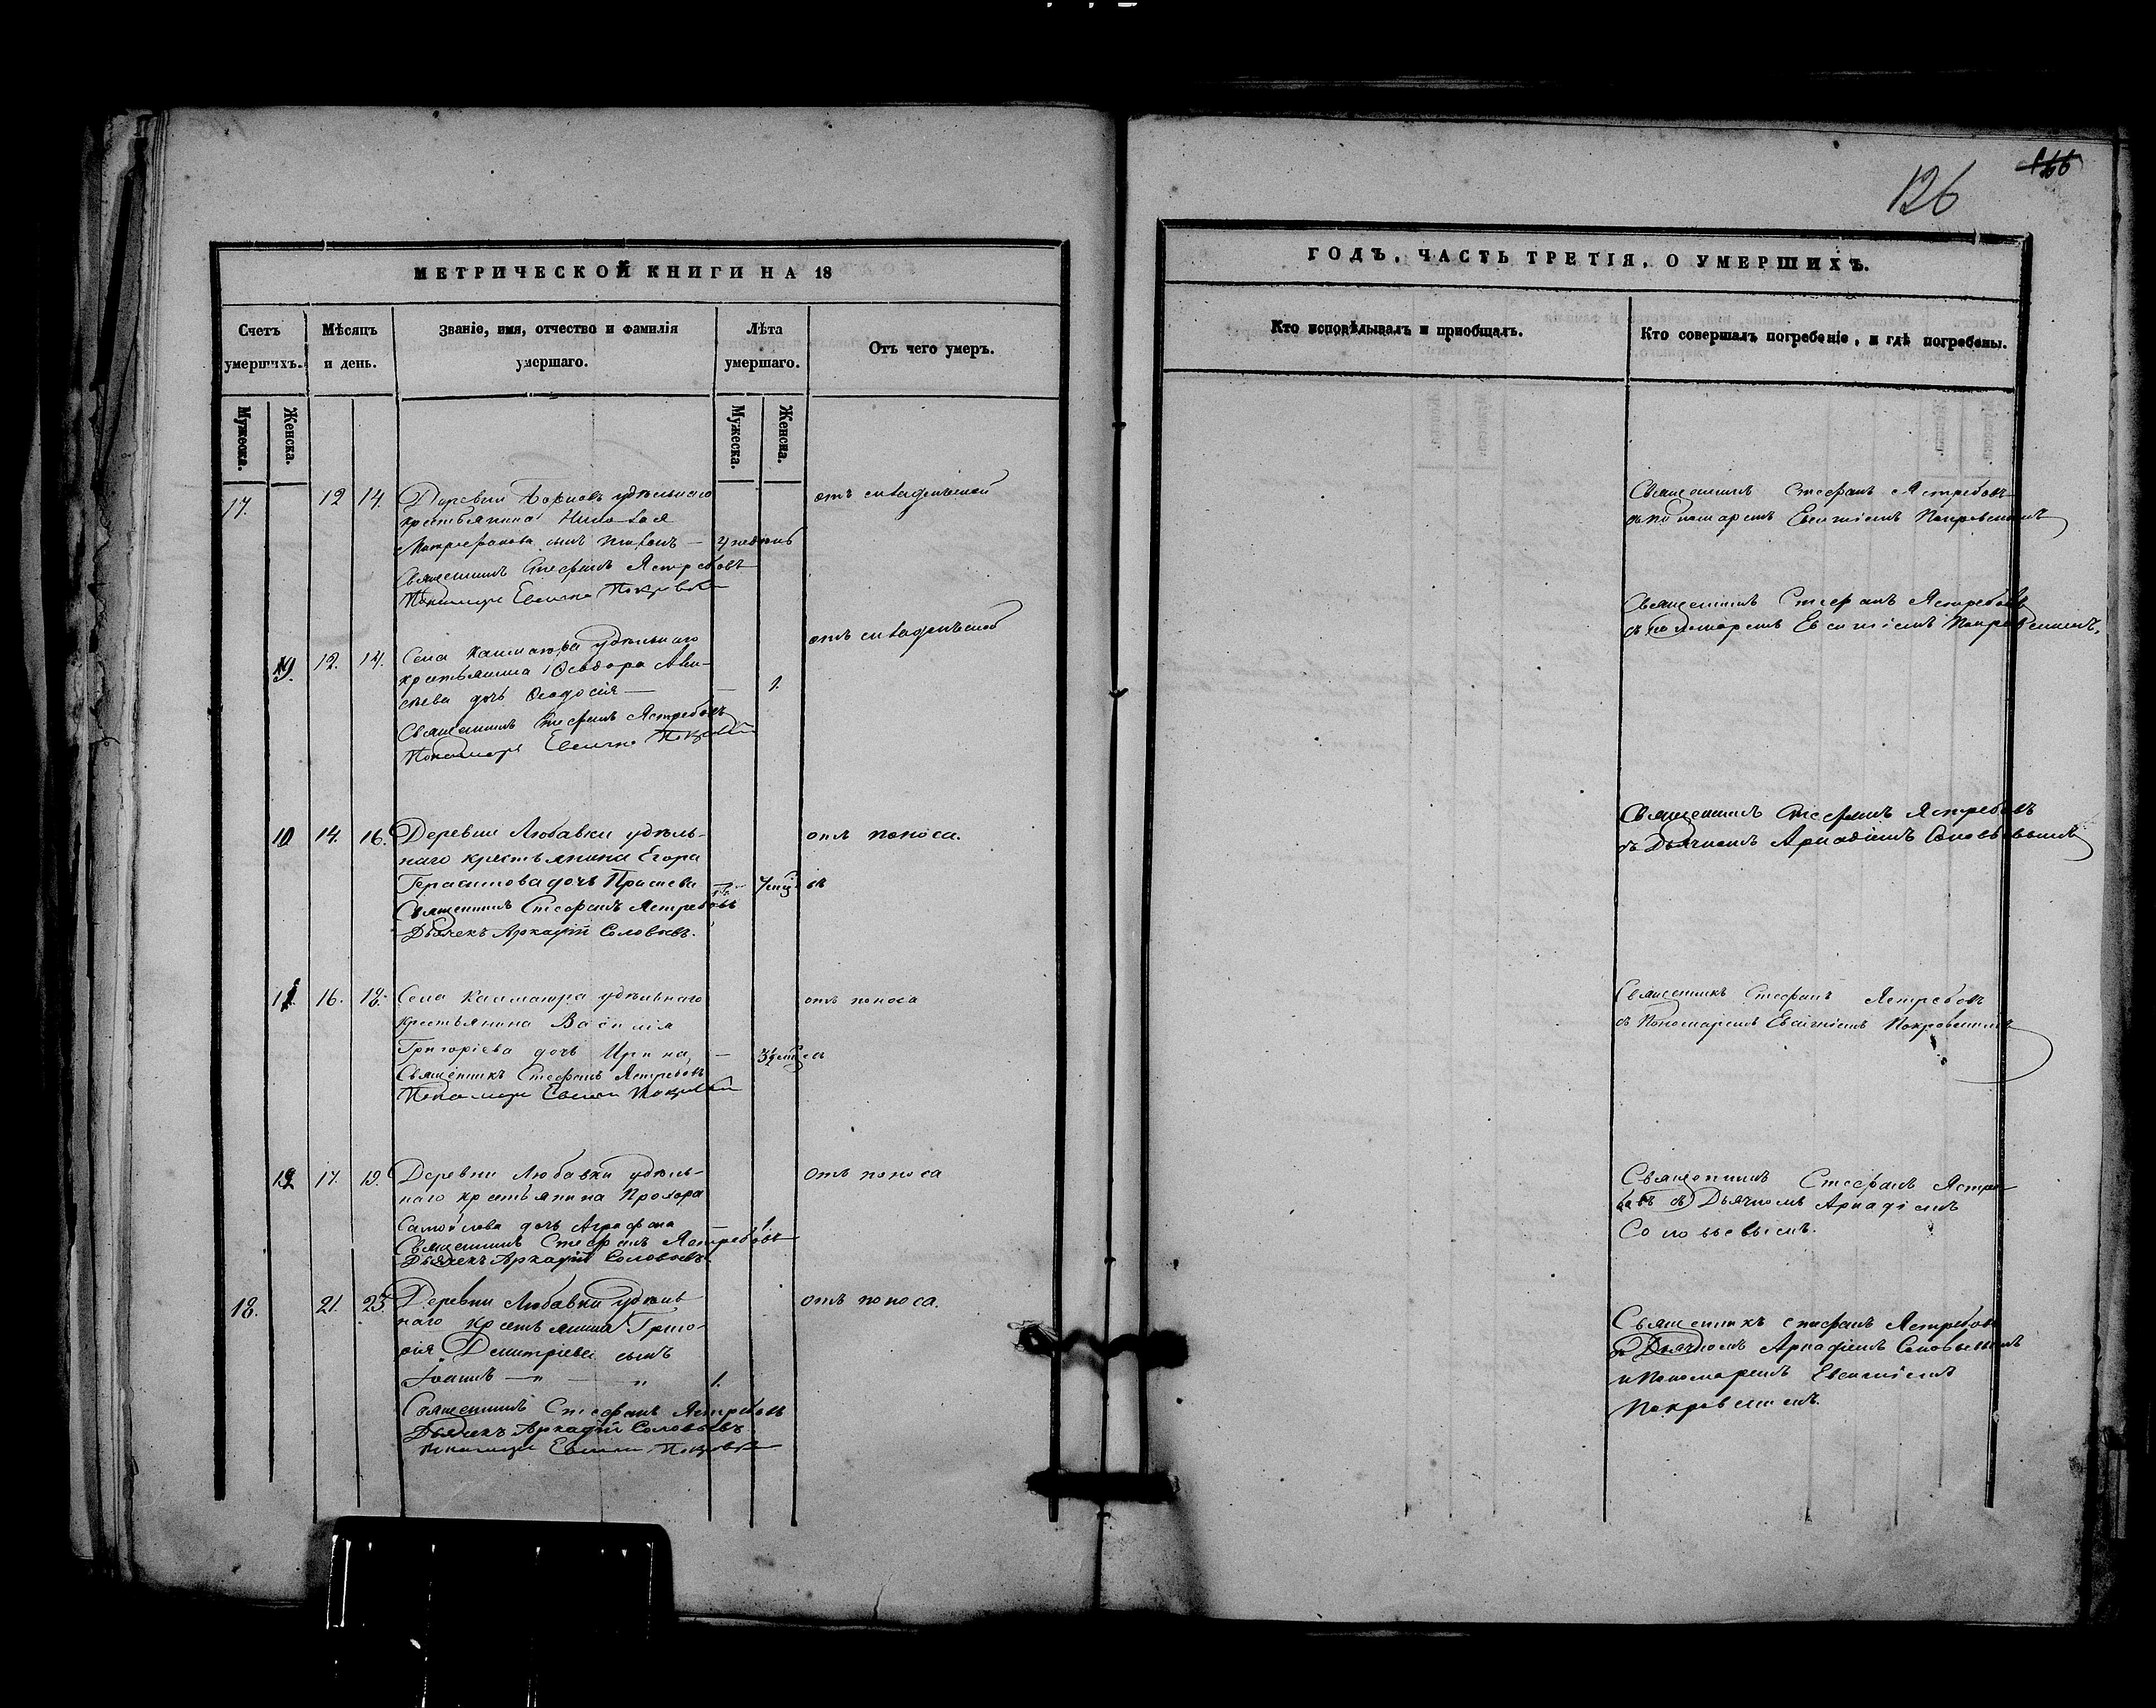 126
МЕТРИЧЕСКОЙ КНИГИ НА 18
ГОДЪ, ЧАСТЬ ТРЕТІЯ, О УМЕРШИХЪ.
Счетъ умершихъ.
Мѣсяцъ и день.
Званіе, имя, отчество и фамилія умершаго.
Лѣта умершаго.
Отъ чего умеръ.
Кто исповѣдывалъ и пріобщалъ.
Кто совершалъ погребеніе, и гдѣ погребены.
Мужеска.
Женска.
Мужеска.
Женска.
17. 12 14. Деревни удѣльнаго
крестьянина Николая
Митрофанова сынъ
Священникъ Стефанъ Ястребовъ
Пономарь Евсигній Покровскій
Священникъ Стефанъ Ястребовъ
съ пономаремъ Евсигніемъ Покровскимъ
9. 12. 14. Села удѣльнаго
крестьянина Ѳеодора Алек-
сѣева дочь Ѳеодосія — — 1.
Священникъ Стефанъ Ястребовъ
Пономарь Евсигній Покровскій
Священникъ Стефанъ Ястребовъ
съ пономаремъ Евсигніемъ Покровскимъ.
10 14. 16. Деревни Любавки удѣль- отъ поноса.
наго крестьянина Егора
Герасимова дочь
Священникъ Стефанъ Ястребовъ
Дьячекъ Аркадій Соловьевъ.
Священникъ Стефанъ Ястребовъ
съ Дьячкомъ Аркадіемъ Соловьевымъ
11. 16. 18. Села удѣльнаго отъ поноса
крестьянина Василія
Григоріева дочь Ирина —
Священникъ Стефанъ Ястребовъ
Пономарь Евсигній Покровскій
Священникъ Стефанъ Ястребовъ
съ Пономаремъ Евсигніемъ Покровскимъ
12 17. 19. Деревни Любавки удѣль- отъ поноса
наго крестьянина Прохора
Самойлова дочь Аграфена — 1.
Священникъ Стефанъ Ястребовъ
Дьячекъ Аркадій Соловьевъ.
Священникъ Стефанъ Ястре-
бовъ съ Дьячкомъ Аркадіемъ
Соловьевымъ.
18. 21. 23. Деревни Любавки удѣль- отъ поноса.
наго крестьянина Григо-
рія Димитріева сынъ
Іоаннъ — " — " 1.
Священникъ Стефанъ Ястребовъ
Дьячекъ Аркадій Соловьевъ
Пономарь Евсигній Покровскій
Священникъ Стефанъ Ястребовъ
съ Дьячкомъ Аркадіемъ Соловьевымъ
и Пономаремъ Евсигніемъ
Покровскимъ.